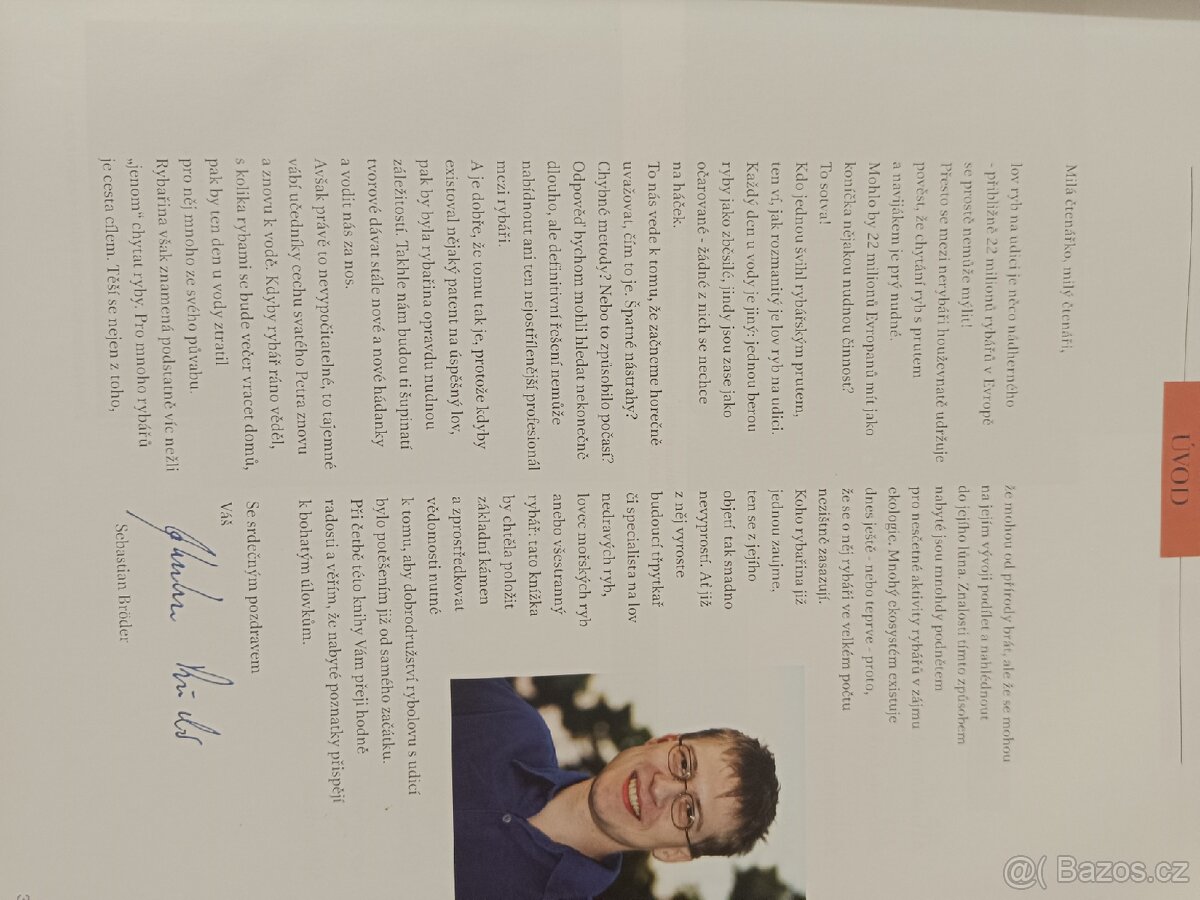 ÚVOD
Milá čtenářko, milý čtenáři,
lov ryb na udici je něco nádherného
- přibližně 22 millionů rybářů v Evropě
se prostě nemůže mýlit!
Přesto se mezi nerybáři houževnatě udržuje
pověst, že chytání ryb s prutem
a navijákem je prý nudné.
Mohlo by 22 milionů Evropanů mít jako
koníčka nějakou nudnou činnost?
To sotva!
Kdo jednou švihl rybářským prutem,
ten ví, jak rozmanitý je lov ryb na udici.
Každý den u vody je jiný: jednou berou
ryby jako zběsilé, jindy jsou zase jako
očarované - žádné z nich se nechce
na háček.
To nás vede k tomu, že začneme horečně
uvažovat, čím to je. Špatné nástrahy?
Chybné metody? Nebo to způsobilo počasí?
Odpověď bychom mohli hledat nekonečně
dlouho, ale definitivní řešení nemůže
nabídnout ani ten nejostřílenější profesionál
mezi rybáři.
A je dobře, že tomu tak je, protože kdyby
existoval nějaký patent na úspěšný lov,
pak by byla rybařina opravdu nudnou
záležitostí. Takhle nám budou ti šupinatí
tvorové dávat stále nové a nové hádanky
a vodit nás za nos.
Avšak právě to nevypočitatelné, to tajemné
vábí učedníky cechu svatého Petra znovu
a znovu k vodě. Kdyby rybář ráno věděl,
s kolika rybami se bude večer vracet domů,
pak by ten den u vody ztratil
pro něj mnoho ze svého půvabu.
Rybařina však znamená podstatně víc nežli
„jenom“ chytat ryby. Pro mnoho rybářů
je cesta cílem. Těší se nejen z toho,
že mohou od přírody brát, ale že se mohou
na jejím vývoji podílet a nahlédnout
do jejího lůna. Znalosti tímto způsobem
nabyté jsou mnohdy podnětem
pro nesčetné aktivity rybářů v zájmu
ekologie. Mnohý ekosystém existuje
dnes ještě - nebo teprve - proto,
že se o něj rybáři ve velkém počtu
nezištně zasazují.
Koho rybařina již
jednou zaujme,
ten se z jejího
objetí tak snadno
nevyprostí. Ať již
z něj vyroste
budoucí třpytkař
či specialista na lov
nedravých ryb,
lovec mořských ryb
anebo všestranný
rybář: tato knížka
by chtěla položit
základní kámen
a zprostředkovat
vědomosti nutné
k tomu, aby dobrodružství rybolovu s udicí
bylo potěšením již od samého začátku.
Při četbě této knihy Vám přeji hodně
radosti a věřím, že nabyté poznatky přispějí
k bohatým úlovkům.
Se srdečným pozdravem
Váš
Sebastian Bröder
3
@( Bazos.cz